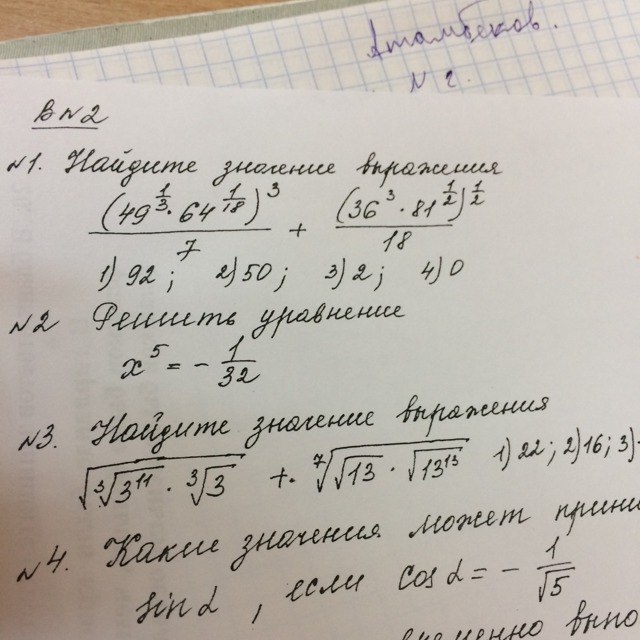 Атамбеков.
N 2.
В N2
N1. Найдите значение выражения
(49^{1/3} · 64^{1/18})^3 / 7 + (36^3 · 81^{1/2})^{1/2} / 18
1) 92; 2) 50; 3) 2; 4) 0
N2 Решить уравнение
x^5 = - 1/32
N3. Найдите значение выражения
√(∛(3^{11}) · ∛3) + ⁷√(√13 · √(13^{13})) 1) 22; 2) 16; 3)
N4. Какие значения может
sin α, если cos α = - 1/√5